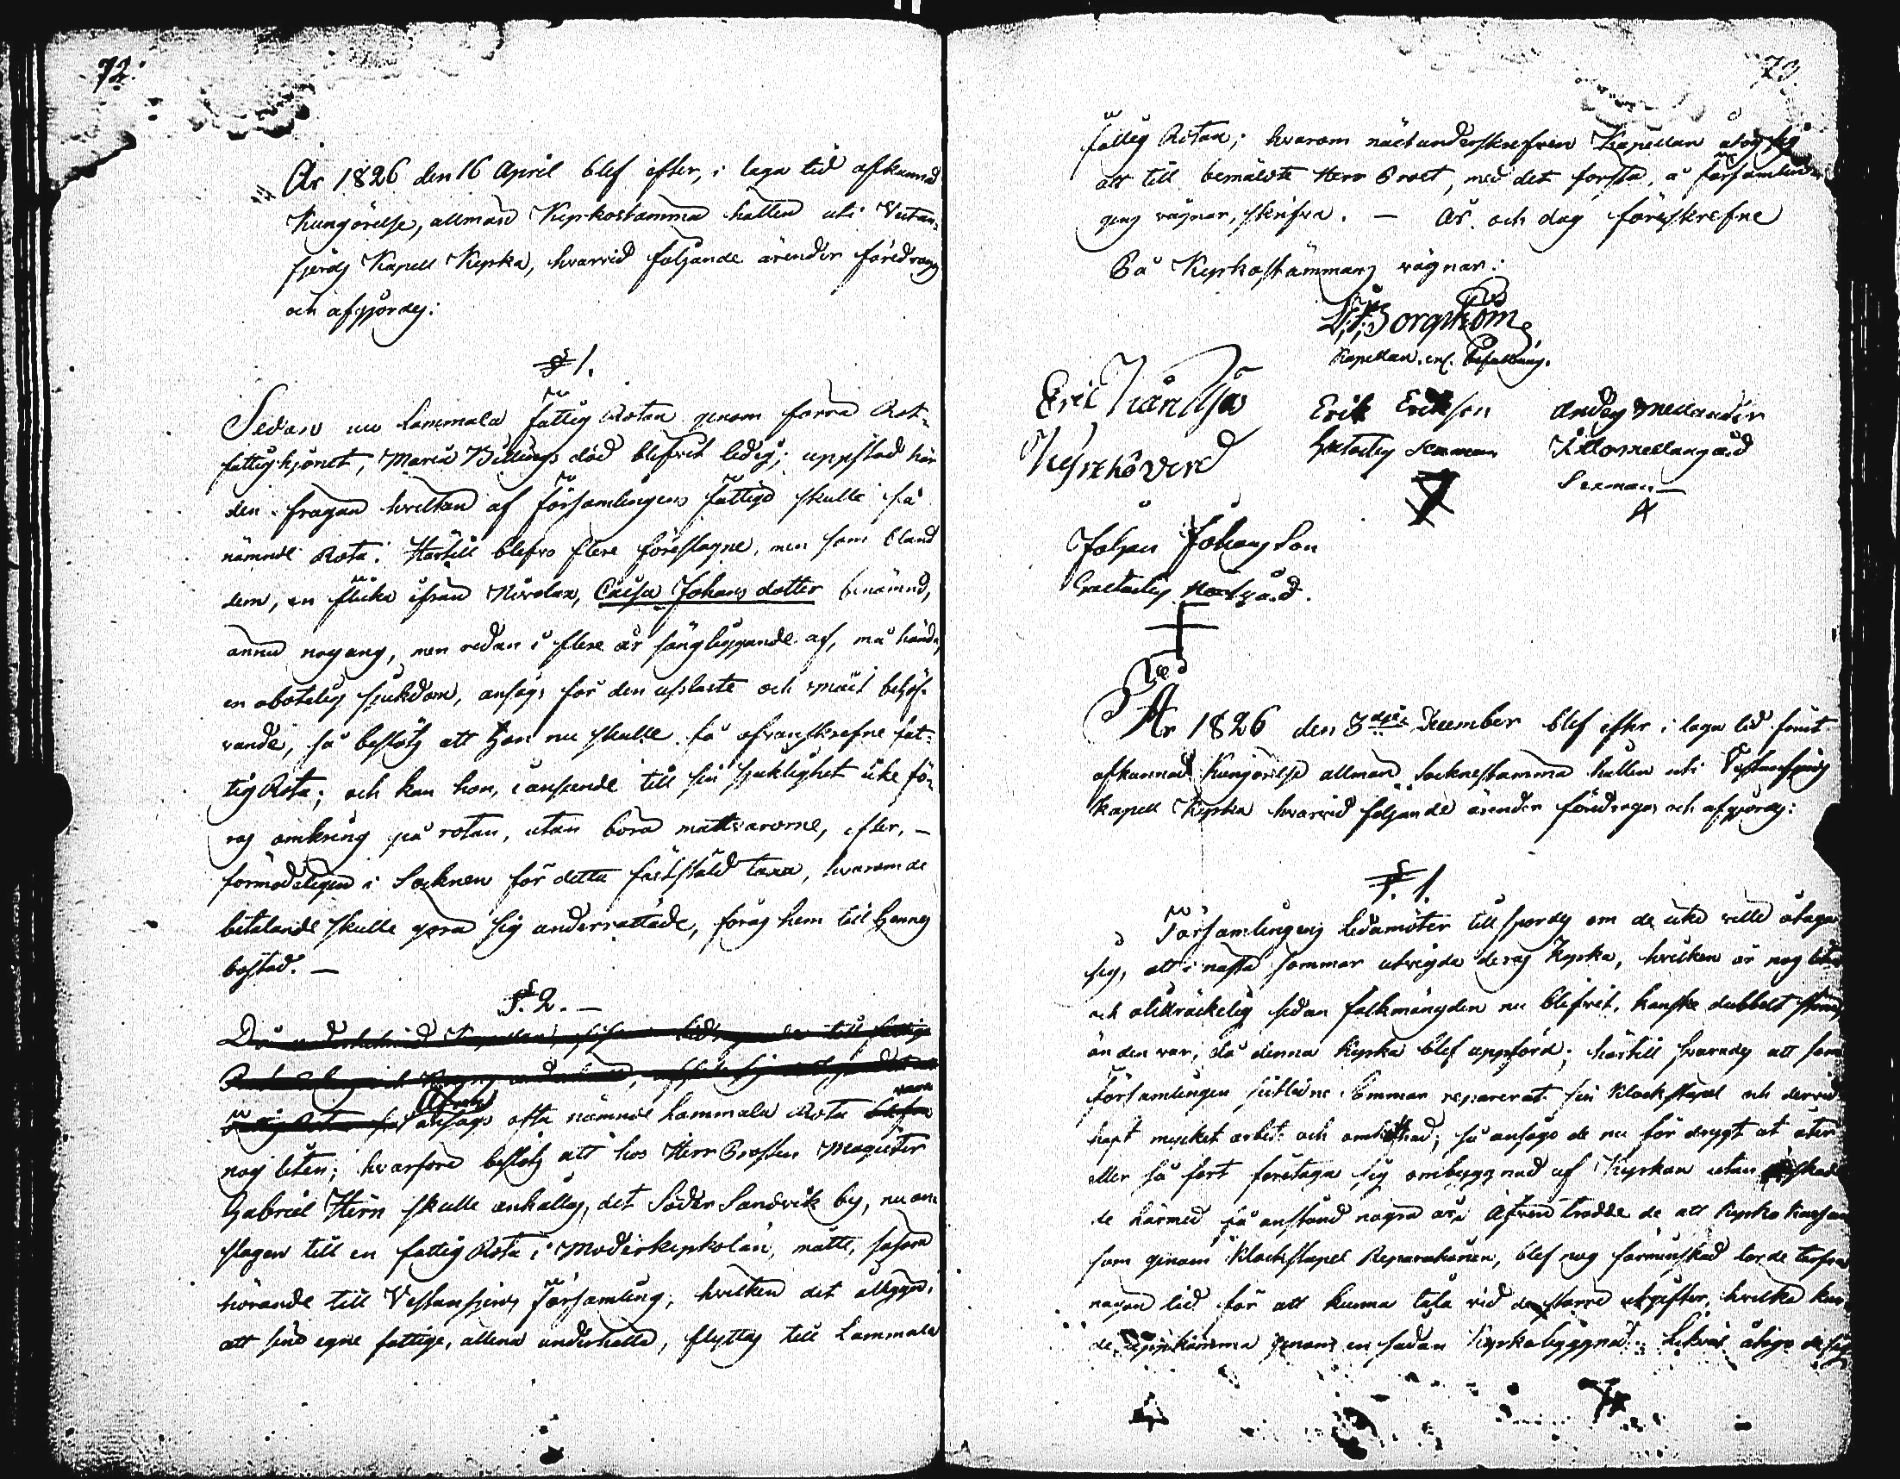 72.
År 1826 den 16 April blef efter, i laga tid afkunnad
Kungörelse, allmän Kyrkostämma hållen uti Vestan-
fjerds Kapell Kyrka, hvarvid följande ärender föredrogs
och afgjordes:
§ 1.
Sedan nu Lammala fattig Rotan genom förra Rot-
fattighjonet, Maria Billings död blifvit ledig; uppstod här
den frågan hvilken af Församlingens fattige skulle få
nämnde Rota. Härtill blefvo flere föreslagne, men som bland
dem, en flicka ifrån Nivelax, Caisa Johans dotter benämnd,
ännu nog ung, men redan i flere år sängliggande af, må hända,
en obotelig sjukdom, ansågs för den uslaste och mäst behöf-
vande, så beslöts att hon nu skulle få ofvanskrefne fat-
tig Rota; och kan hon, i anseende till sin sjuklighet icke fö-
ras omkring på rotan, utan böra matvarorne, efter, –
förmodeligen i Socknen för detta fastställd taxa, hvarom de
betalande skulle göra sig underrättade, föras hem till hennes
bostad. –
§. 2. –
ansågs ofta nämnde Lammala Rota vara
nog liten; hvarföre beslöts att hos Herr Prosten Magister
Gabriel Hirn skulle anhållas, det Söder Sandvik by, nu an-
slagen till en fattig Rota i Moderkyrkolän, måtte, såsom
hörande till Vestanfjerds Församling, hvilken det åligger,
att sine egne fattige, allena underhålla, flyttas till Lammala
73
fattig Rotan; hvarom näst underskrefven Kapellan åtog sig
att till bemälde Herr Prost, med det första, å församlin-
gens vägnar, skrifva. – År och dag föreskrefne
På Kyrkostämmans vägnar:
Borgström
Kapellan. enl. befallning.
Erik
Kyrkovärd
Erik Erikson
Galtarby Sexman
Anders Mellander
Mellangård
Sexman –
Johan Johansson
Galtarby Norrgård.
År 1826 den 3dje December blef efter i laga tid förut
afkunnad Kungörelse allmän Sockenstämma hållen uti Vestanfjerds
Kapell Kyrka hvarvid följande ärender föredrogos och afgjordes:
§. 1.
Församlingens Ledamöter tillspordes om de icke ville åtaga
sig, att i nästa sommar utvidga deras Kyrka, hvilken är nog liten
och otillräckelig sedan folkmängden nu blifvit, kanske dubbelt större,
än den var, då denna Kyrka blef uppförd; härtill svarades att som
Församlingen sistledne Sommar reparerat sin Klockstapel och dervid
haft mycket arbete och omkostnad; så ansågo de nu för drygt at åter
eller så fort företaga sig ombyggnad af Kyrkan utan
de härmed få anstånd några år. Äfven trodde de att Kyrko Kassan
som genom Klockstapel Reparationen, blef nog förminskad torde tarfva
någon tid för att kunna tåla vid de större utgifter, hvilka kun-
de uppkomma genom en sådan Kyrkobyggnad. Likväl åtogo de sig